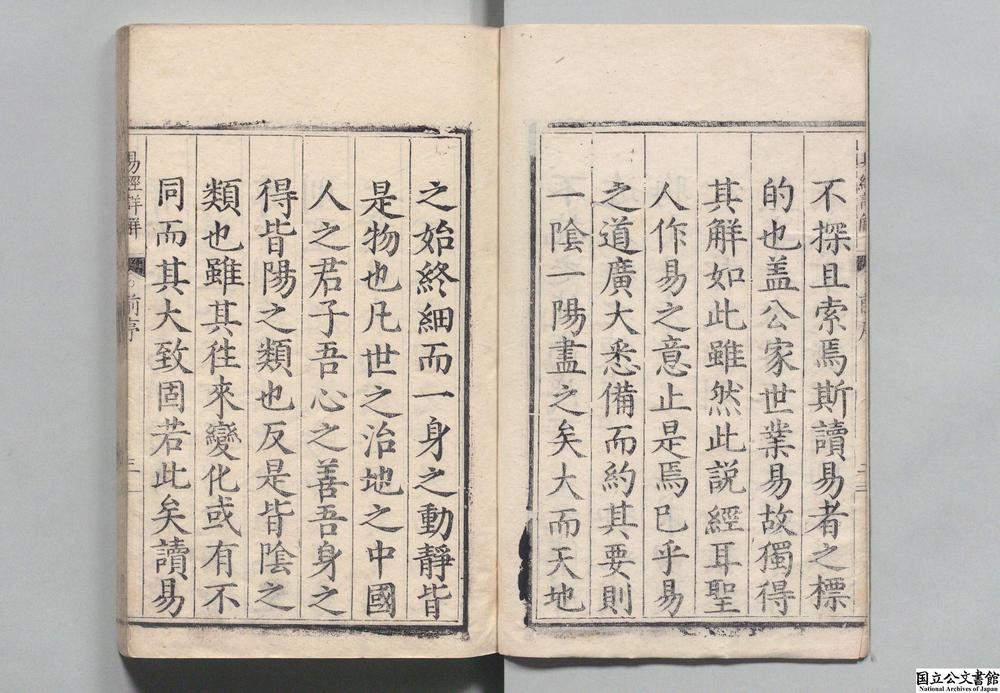 不探且索焉斯讀易者之標
的也盖公家世業易故獨得
其解如此雖然此説經耳聖
人作易之意止是焉已乎易
之道廣大悉備而約其要則
一陰一陽盡之矣大而天地
之始終細而一身之動靜皆
是物也凡世之治地之中國
人之君子吾心之善吾身之
得皆陽之類也反是皆陰之
類也雖其徃來變化或有不
同而其大致固若此矣讀易
易經詳解
前序
国立公文書館
National Archives of Japan